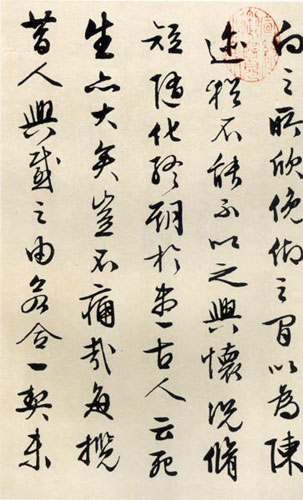 向之所欣俛仰之閒以為陳
迹猶不能不以之興懷況脩
短隨化終期於盡古人云死
生亦大矣豈不痛哉每攬
昔人興感之由若合一契未